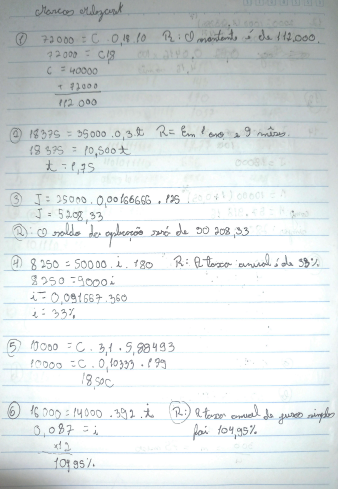 Marcos
① 72000 = C . 0,18.10 R: O montante é de 112.000.
72000 = C 1,8
C = 40000
+ 72000
112 000
② 18375 = 35000 . 0,3.t R= Em 1 ano e 9 meses.
18 375 = 10,500 t
t = 1,75
③ J = 25000 . 0,00166666 . 125
J = 5208,33
R) O saldo da aplicação será de 30 208,33
④ 8250 = 50000 . i . 180 R: A taxa anual é de 33%
8250 = 9000 i
i = 0,091667.360
i = 33%
⑤ 19000 = C . 3,1 . 5,89493
10000 = C . 0,10333 . 179
18,50C
⑥ 16000 = 14000 . 392 . i R: A taxa anual de juros simples
0,087 = i foi 104,95%
x12
104,95%